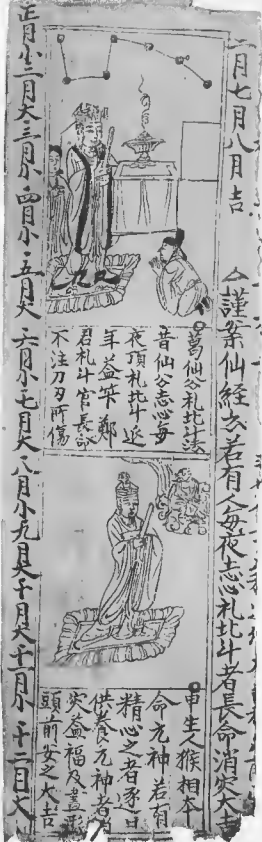 二月七月八月吉
謹案仙経云若有人每夜志心礼北斗者長命消灾大吉
葛仙公礼北斗法
昔仙公志心每
夜頂礼北斗延
年益筭鄭
君礼斗官長
不注刀刃所傷
申生人猴相本
命元神若有
精心之者逐日
供養元神者消
灾益福及畫形
頭前安之大吉
正月小二月大三月小四月小五月大六月小七月大八月小九月大十月大十一月小十二月大